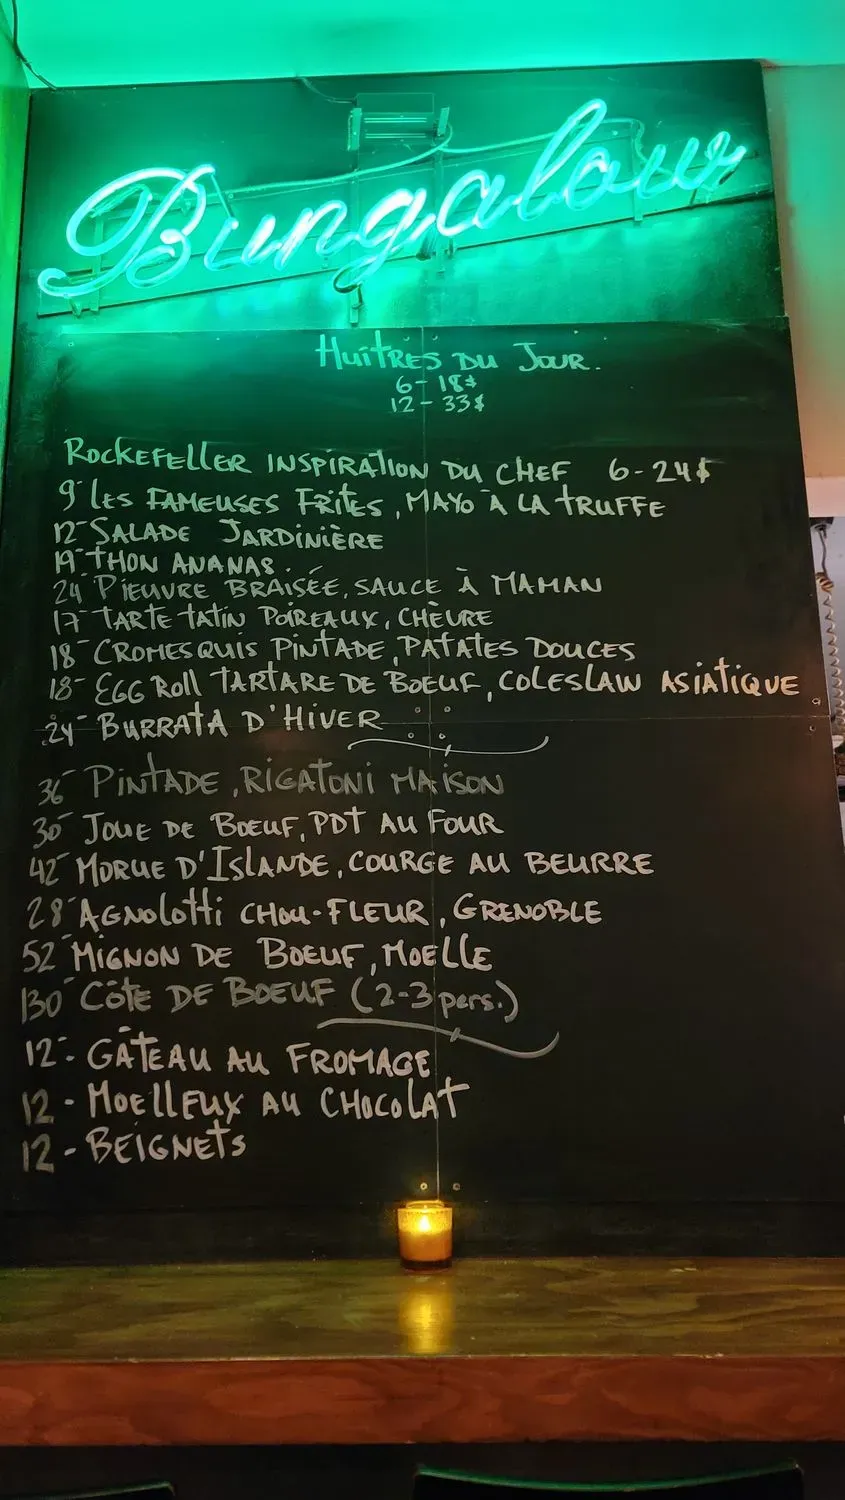 Bungalow
HUÎTRES DU JOUR.
6 - 18$
12 - 33$
ROCKEFELLER INSPIRATION DU CHEF 6-24$
9- LES FAMEUSES FRITES, MAYO À LA TRUFFE
12- SALADE JARDINIÈRE
19- THON ANANAS.
24- PIEUVRE BRAISÉE, SAUCE À MAMAN
17- TARTE TATIN POIREAUX, CHÈVRE
18- CROMESQUIS PINTADE, PATATES DOUCES
18- EGG ROLL TARTARE DE BOEUF, COLESLAW ASIATIQUE
24- BURRATA D'HIVER
36- PINTADE, RIGATONI MAISON
30- JOUE DE BOEUF, PDT AU FOUR
42- MORUE D'ISLANDE, COURGE AU BEURRE
28- AGNOLOTTI CHOU-FLEUR, GRENOBLE
52- MIGNON DE BOEUF, MOELLE
130- CÔTE DE BOEUF (2-3 pers.)
12- GÂTEAU AU FROMAGE
12 - MOELLEUX AU CHOCOLAT
12 - BEIGNETS